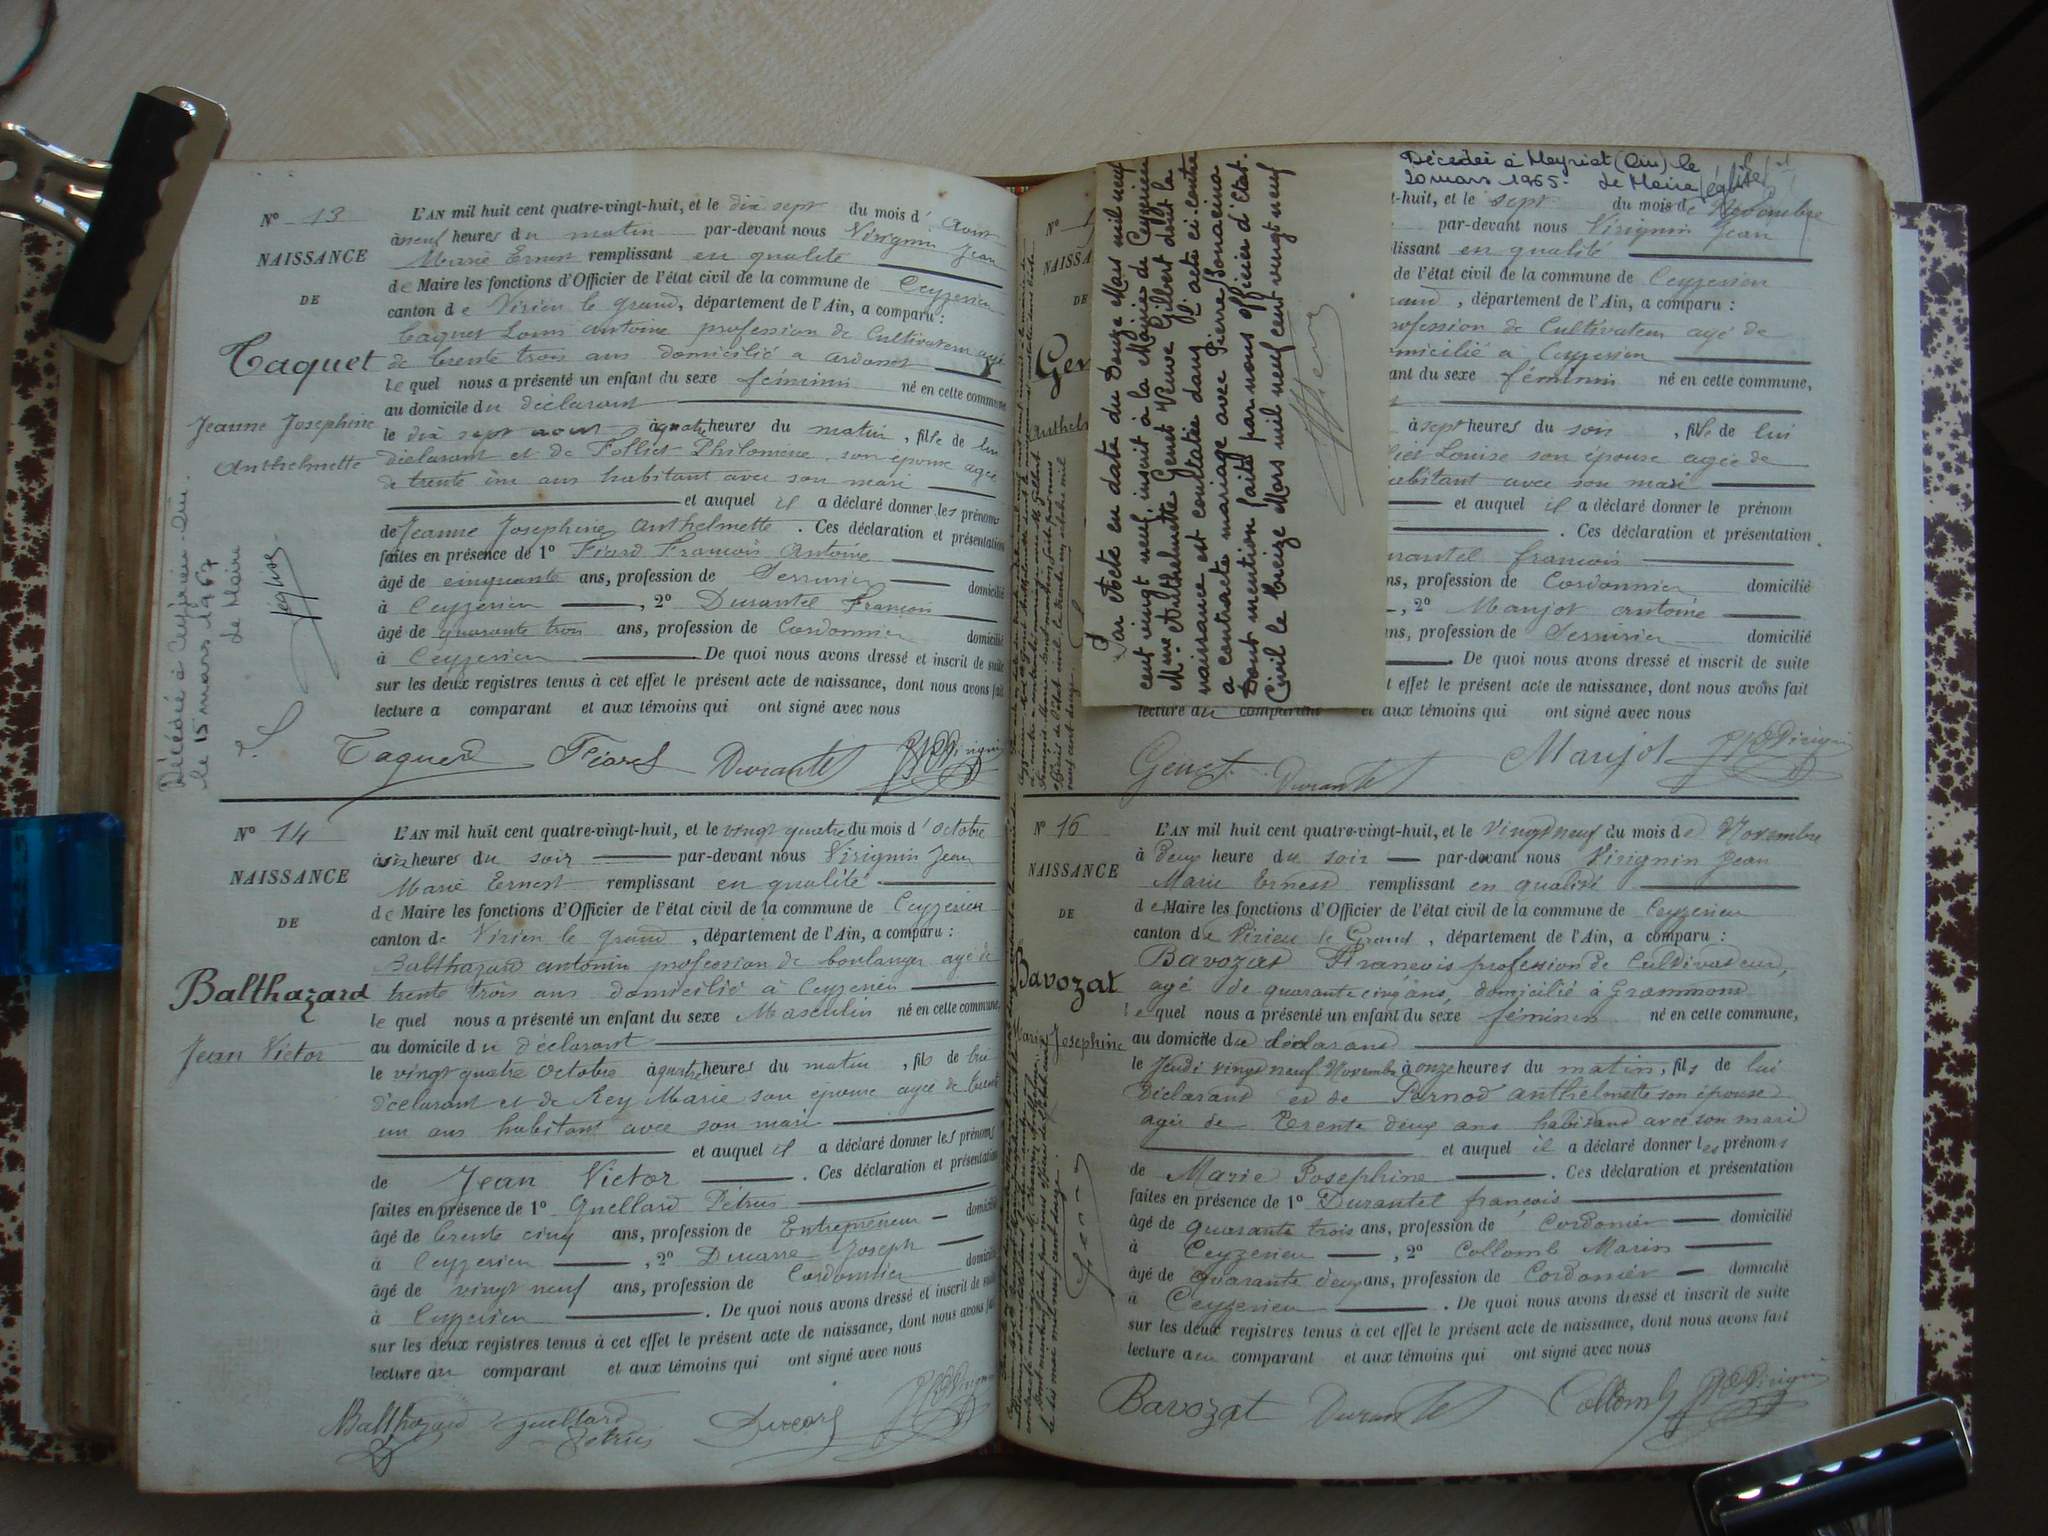 N° 13
NAISSANCE
DE
Taquet
Jeanne Josephine
Anthelmette
Décédée à Ceyzérieu-Ain.
le 15 mars 1967
Le Maire
L'AN mil huit cent quatre-vingt-huit, et le dix sept du mois d' Aout
à neuf heures du matin par-devant nous Virignin Jean
Marie Ernest remplissant en qualité
de Maire les fonctions d'Officier de l'état civil de la commune de Ceyzerieu
canton de Virieu le grand, département de l'Ain, a comparu :
Taquet Louis antoine profession de Cultivateur agé
de trente trois ans domicilié a ardosset
le quel nous a présenté un enfant du sexe féminin né en cette commune
au domicile du déclarant
le dix sept aout à quatre heures du matin, fille de lui
déclarant et de Folliet Philomene son épouse agée
de trente un ans habitant avec son mari
et auquel il a déclaré donner les prénoms
de Jeanne Josephine Anthelmette. Ces déclaration et présentation
faites en présence de 1° Fiard François Antoine
âgé de cinquante ans, profession de Serrurier domicilié
à Ceyzerieu, 2° Durantel François
âgé de quarante trois ans, profession de Cordonnier domicilié
à Ceyzerieu De quoi nous avons dressé et inscrit de suite
sur les deux registres tenus à cet effet le présent acte de naissance, dont nous avons fait
lecture a comparant et aux témoins qui ont signé avec nous
Taquet Fiard Durantel Virignin
N° 14
NAISSANCE
DE
Balthazard
Jean Victor
L'AN mil huit cent quatre-vingt-huit, et le vingt quatre du mois d' octobre
à six heures du soir par-devant nous Virignin Jean
Marie Ernest remplissant en qualité
de Maire les fonctions d'Officier de l'état civil de la commune de Ceyzerieu
canton de Virieu le grand, département de l'Ain, a comparu :
Balthazard antonin profession de boulanger agé de
trente trois ans domicilié à Ceyzerieu
le quel nous a présenté un enfant du sexe Masculin né en cette commune,
au domicile du déclarant
le vingt quatre octobre à quatre heures du matin, fils de lui
déclarant et de Rey Marie son épouse agée de trente
un ans habitant avec son mari
et auquel il a déclaré donner les prénoms
de Jean Victor. Ces déclaration et présentation
faites en présence de 1° Quellard Pétrus
âgé de trente cinq ans, profession de Entrepreneur domicilié
à Ceyzerieu, 2° Ducarre Joseph
âgé de vingt neuf ans, profession de Cordonnier domicilié
à Ceyzerieu. De quoi nous avons dressé et inscrit de suite
sur les deux registres tenus à cet effet le présent acte de naissance, dont nous avons fait
lecture au comparant et aux témoins qui ont signé avec nous
Balthazard quellard Petrus Virignin
N° 1
NAISSA
DE
Gen
Anthel
Par Acte en date du Douze Mars mil neuf
cent vingt neuf, inscrit à la Mairie de Ceyzerieu
Mme Anthelmette Genet Veuve Gilbert dont la
naissance est constatée dans l'acte ci-contre
a contracté mariage avec Pierre
Dont mention faite par nous officier d'Etat-
Civil le treize Mars mil neuf cent vingt neuf
Décédée à Meyriat (Ain) le
20 mars 1965. Le Maire
t-huit, et le sept du mois de Novembre
par-devant nous Virignin Jean
plissant en qualité
de l'état civil de la commune de Ceyzerieu
rand, département de l'Ain, a comparu :
rofession de Cultivateur agé de
omicilié a Ceyzerieu
ant du sexe féminin né en cette commune,
à sept heures du soir, fille de lui
Louise son épouse agée de
habitant avec son mari
et auquel il a déclaré donner le prénom
. Ces déclaration et présentation
urantel françois
ns, profession de Cordonnier domicilié
, 2° Maujot antoine
ns, profession de Serrurier domicilié
. De quoi nous avons dressé et inscrit de suite
t effet le présent acte de naissance, dont nous avons fait
lecture au comparant et aux témoins qui ont signé avec nous
Genet Durantel Maujot Virignin
N° 16
NAISSANCE
DE
Bavozat
Marie Josephine
L'AN mil huit cent quatre-vingt-huit, et le Vingt neuf du mois de Novembre
à deux heure du soir par-devant nous Virignin Jean
Marie Ernest remplissant en qualité
de Maire les fonctions d'Officier de l'état civil de la commune de Ceyzerieu
canton de Virieu le Grand, département de l'Ain, a comparu :
Bavozat François profession de Cultivateur,
agé de quarante cinq ans, domicilié à Grammond
le quel nous a présenté un enfant du sexe féminin né en cette commune,
au domicile du déclarant
le Jeudi vingt neuf Novembre à onze heures du matin, fils de lui
Déclarant et de Pernod anthelmette son épouse
agée de Trente deux ans habitant avec son mari
et auquel il a déclaré donner les prénoms
de Marie Josephine. Ces déclaration et présentation
faites en présence de 1° Durantel françois
âgé de quarante trois ans, profession de Cordonier domicilié
à Ceyzerieu, 2° Collomb Marin
âgé de quarante deux ans, profession de Cordonier domicilié
à Ceyzerieu. De quoi nous avons dressé et inscrit de suite
sur les deux registres tenus à cet effet le présent acte de naissance, dont nous avons fait
lecture au comparant et aux témoins qui ont signé avec nous
Bavozat Durantel Collomb Virignin